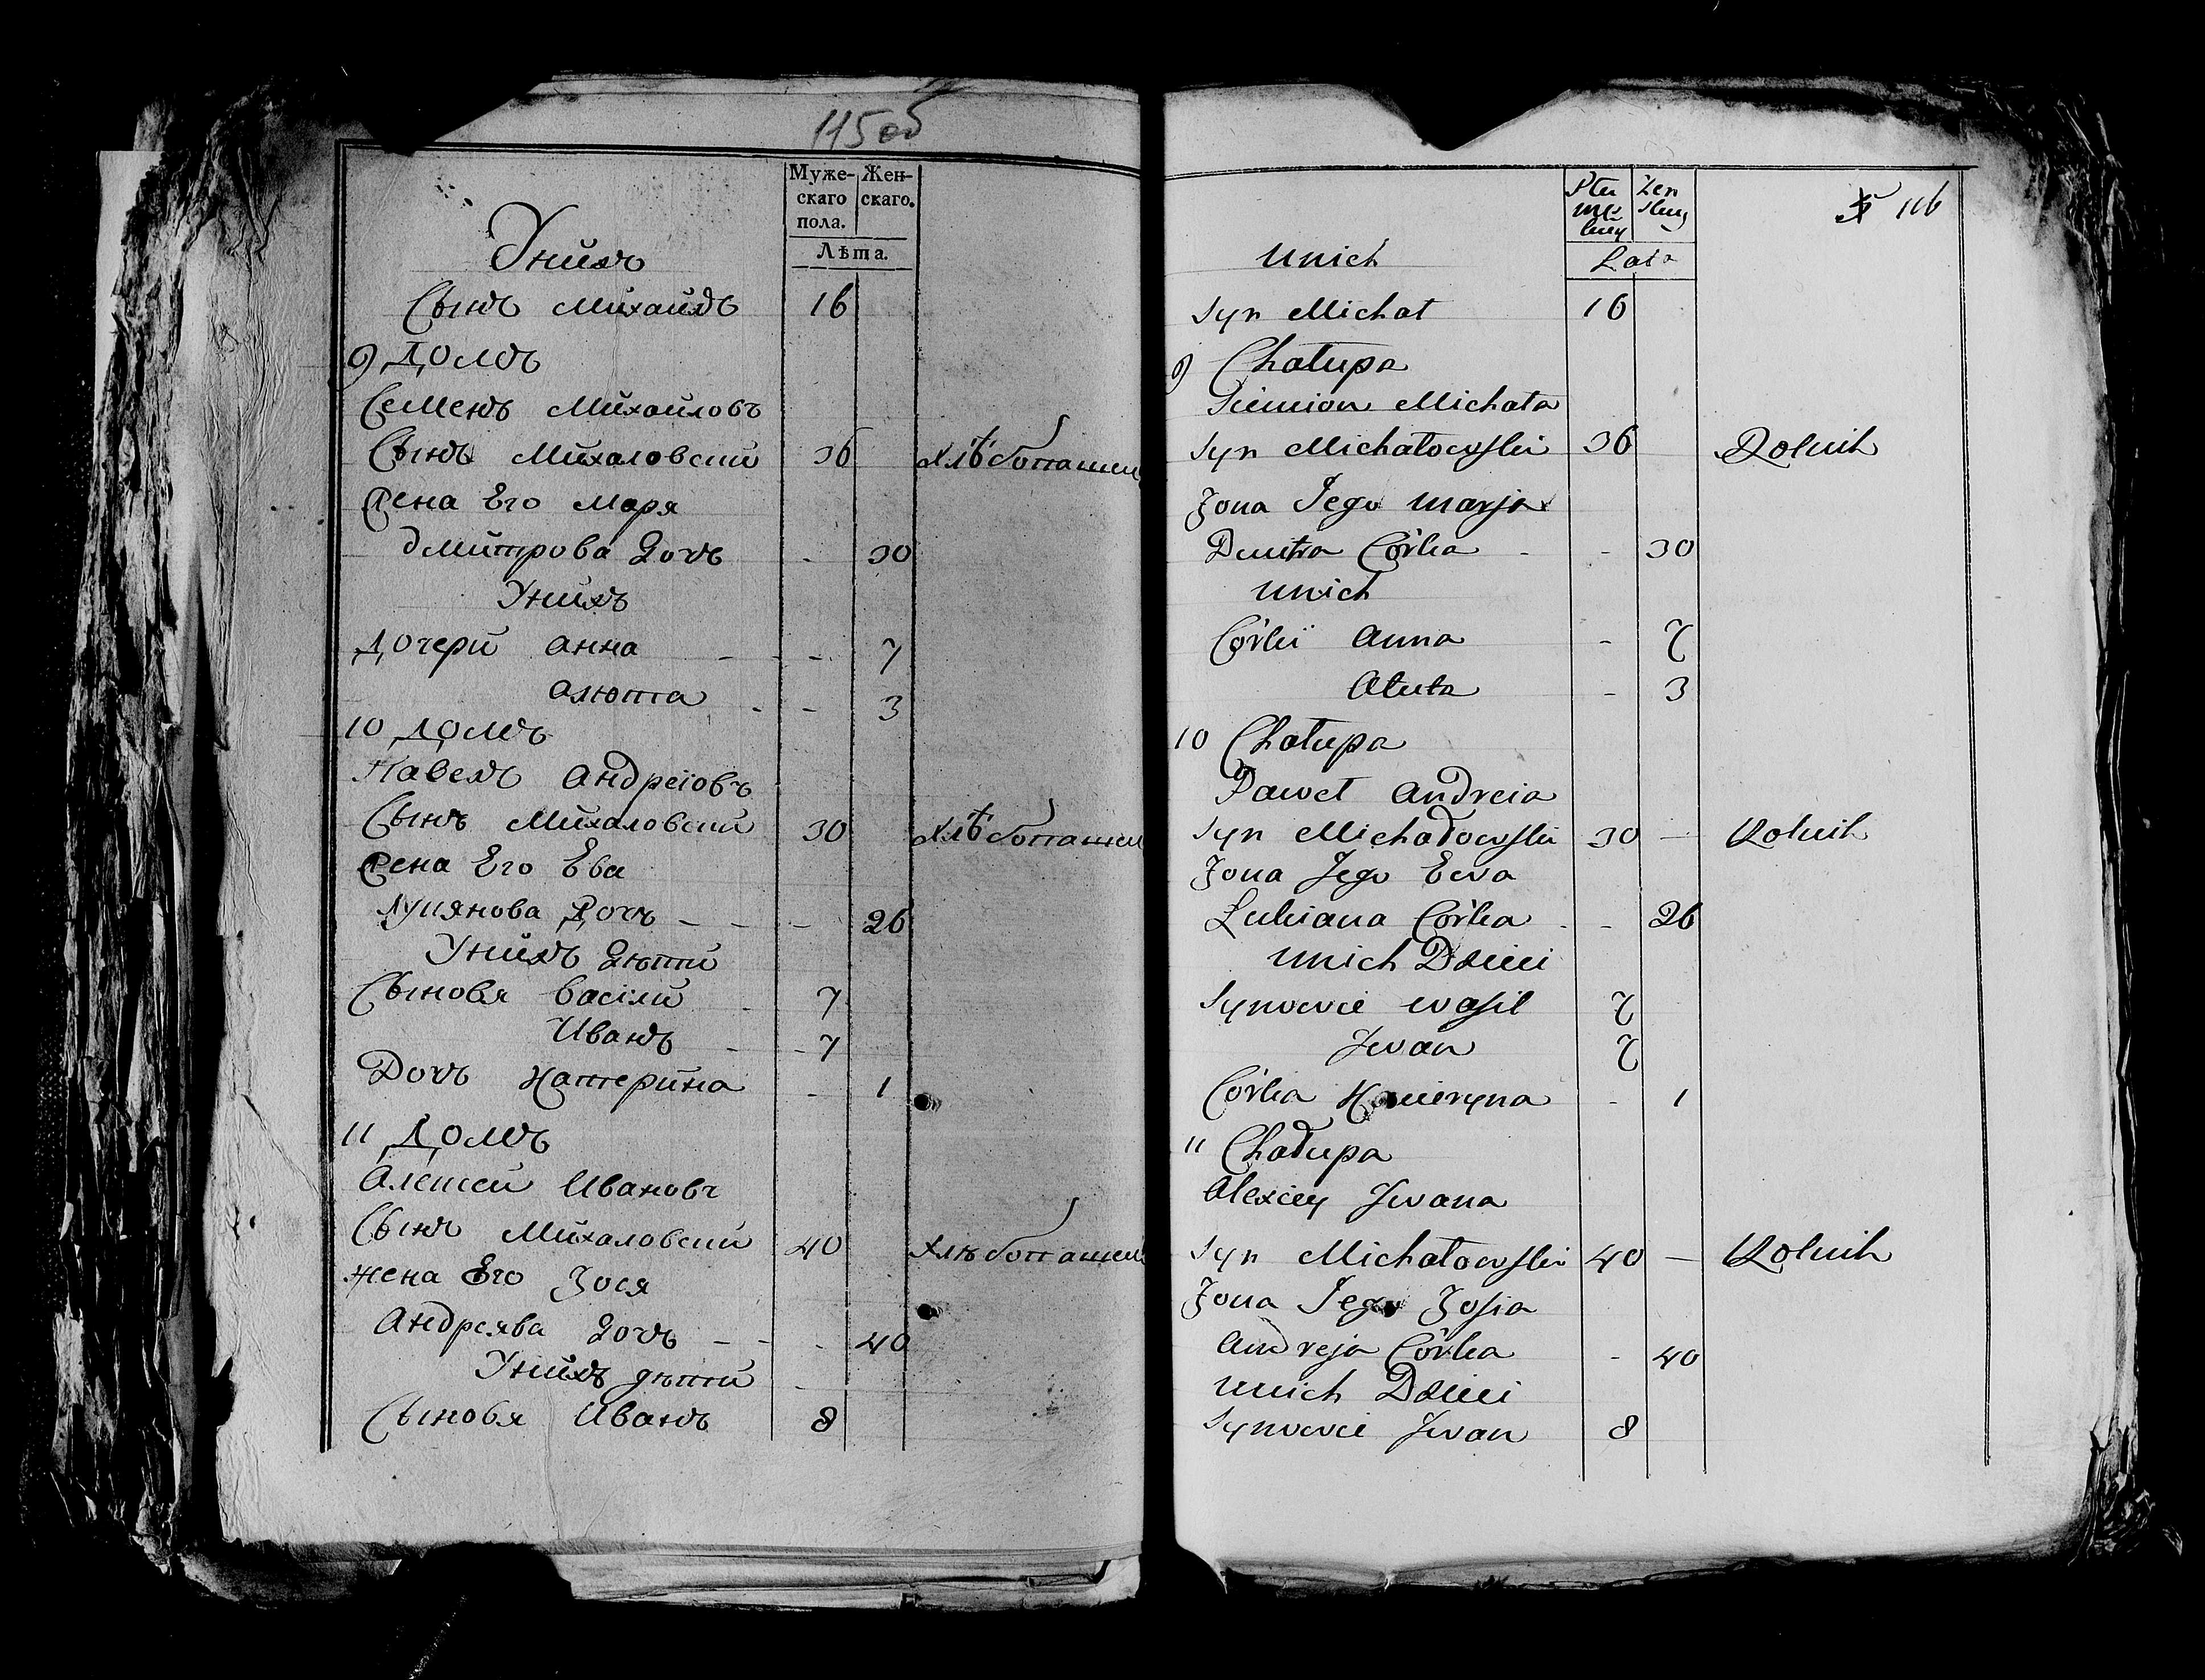 115об
Муже- Жен-
скаго скаго.
пола.
Лѣта.
Унихъ
Сынъ Михаилъ 16
9 Домъ
Семенъ Михаиловъ
Сынъ Михаловский 36 хлѣбопашец
Жена Его Маря
Дмитрова Дочъ - 30
Унихъ
Дочери Анна - - - 7
Алюта - - 3
10 Домъ
Павелъ Андреіовъ
Сынъ Михаловский 30 хлѣбопашец
Жена Его Ева
Лукянова Дочъ - - - 26
Унихъ Дѣти
Сыновя Васіли - 7
Иванъ - - 7
Дочъ Катерина - 1
11 Домъ
Алексей Ивановъ
Сынъ Михаловский 40 хлѣбопашец
Жена Его Зося
Андреява Дочъ - - - 40
Унихъ дѣти
Сыновя Иванъ 8
116
Płci Żeń
mę- skiey
skiey
Lata
Unich
Syn Michał 16
9 Chałupa
Siemion Michała
Syn Michałowski 36 Rolnik
Żona Jego Marja
Dmitra Córka - - 30
Unich
Córki Anna - 7
Aluta - 3
10 Chałupa
Paweł Andreia
Syn Michałowski 30 — Rolnik
Żona Jego Ewa
Lukiana Córka - - 26
Unich Dzieci
Synowie Wasil 7
Jwan 7
Córka Kacieryna - 1
11 Chałupa
Alexiey Jwana
Syn Michałowski 40 — Rolnik
Żona Jego Zosia
Andreja Córka - 40
Unich Dzieci
Synowie Jwan 8